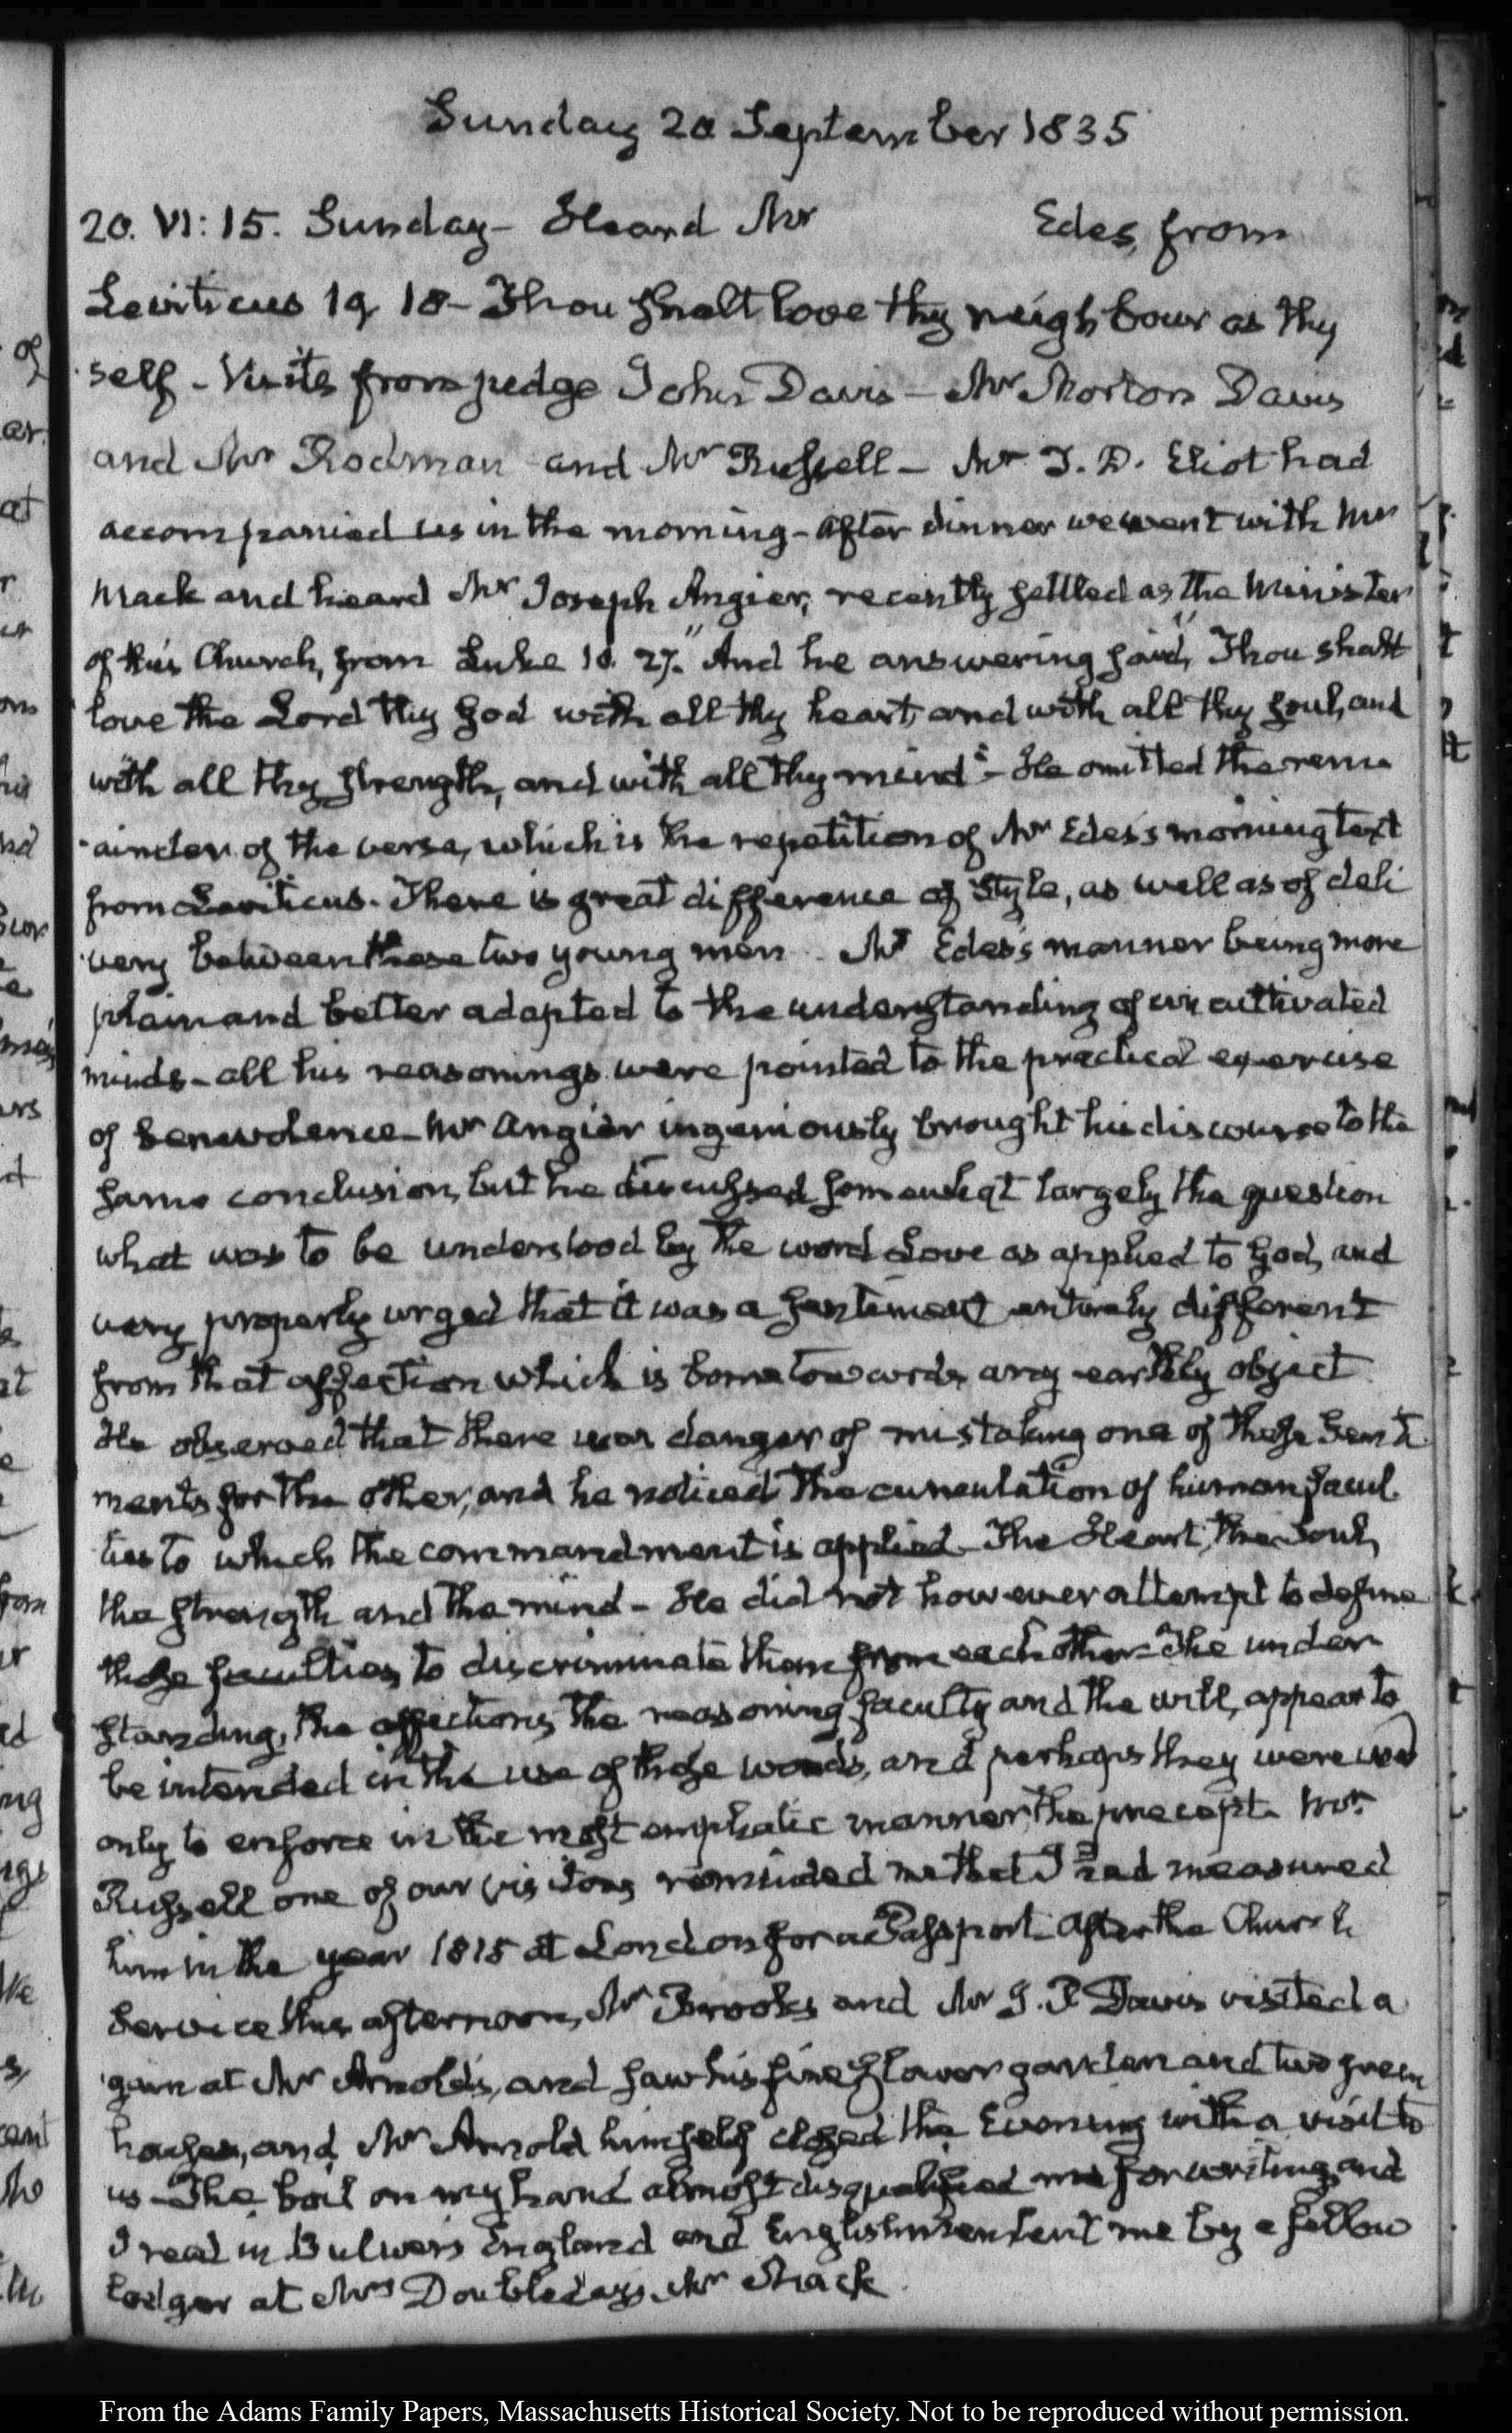 Sunday 20 September 1835
20. VI: 15. Sunday - Heard Mr Edes, from
Leviticus 19 18 - Thou shalt love thy neighbour as thy
self - Visits from judge John Davis - Mr Morton Davis
and Mr Rodman and Mr Russell - Mr T. D. Eliot had
accompanied us in the morning - After dinner we went with Mr
Mack and heard Mr Joseph Angier, recently settled as the Minister
of this Church, from Luke 10. 27. "And he answering said, "Thou shalt
love the Lord thy God with all thy heart, and with all thy soul, and
with all thy strength, and with all thy mind" - He omitted the rema
ainder of the verse, which is the repetition of Mr Edes's morning text
from Leviticus. There is great difference of style, as well as of deli
very between these two young men. Mr Edes's manner being more
plain and better adapted to the understanding of uncultivated
minds - all his reasonings were pointed to the practical exercise
of benevolence - Mr Angier ingeniously brought his discourse to the
same conclusion, but he discussed somewhat largely the question
what was to be understood by the word Love as applied to God, and
very properly urged that it was a sentiment entirely different
from that affection which is borne towards any earthly object
He observed that there was danger of mistaking one of these Senti
ments for the other, and he noticed the cumulation of human facul
ties to which the commandment is applied - The Heart, the Soul,
the strength and the mind - He did not however attempt to define
these faculties, to discriminate them from each other - The under
standing, the affections, the reasoning faculty and the will, appear to
be intended in the use of those words, and perhaps they were used
only to enforce in the most emphatic manner, the precept. Mr
Russell one of our visitors reminded me that I had measured
him in the year 1815 at London for a Passport. After the Church
Service this afternoon, Mr Brooks and Mr J. P. Davis visited a
gain at Mr Arnold's, and saw his fine flower garden and two green
houses, and Mr Arnold himself closed the Evening with a visit to
us - The boil on my hand almost disqualified me for writing, and
I read in Bulwer's England and English lent me by a fellow
lodger at Mrs Doubleday's, Mr Mack